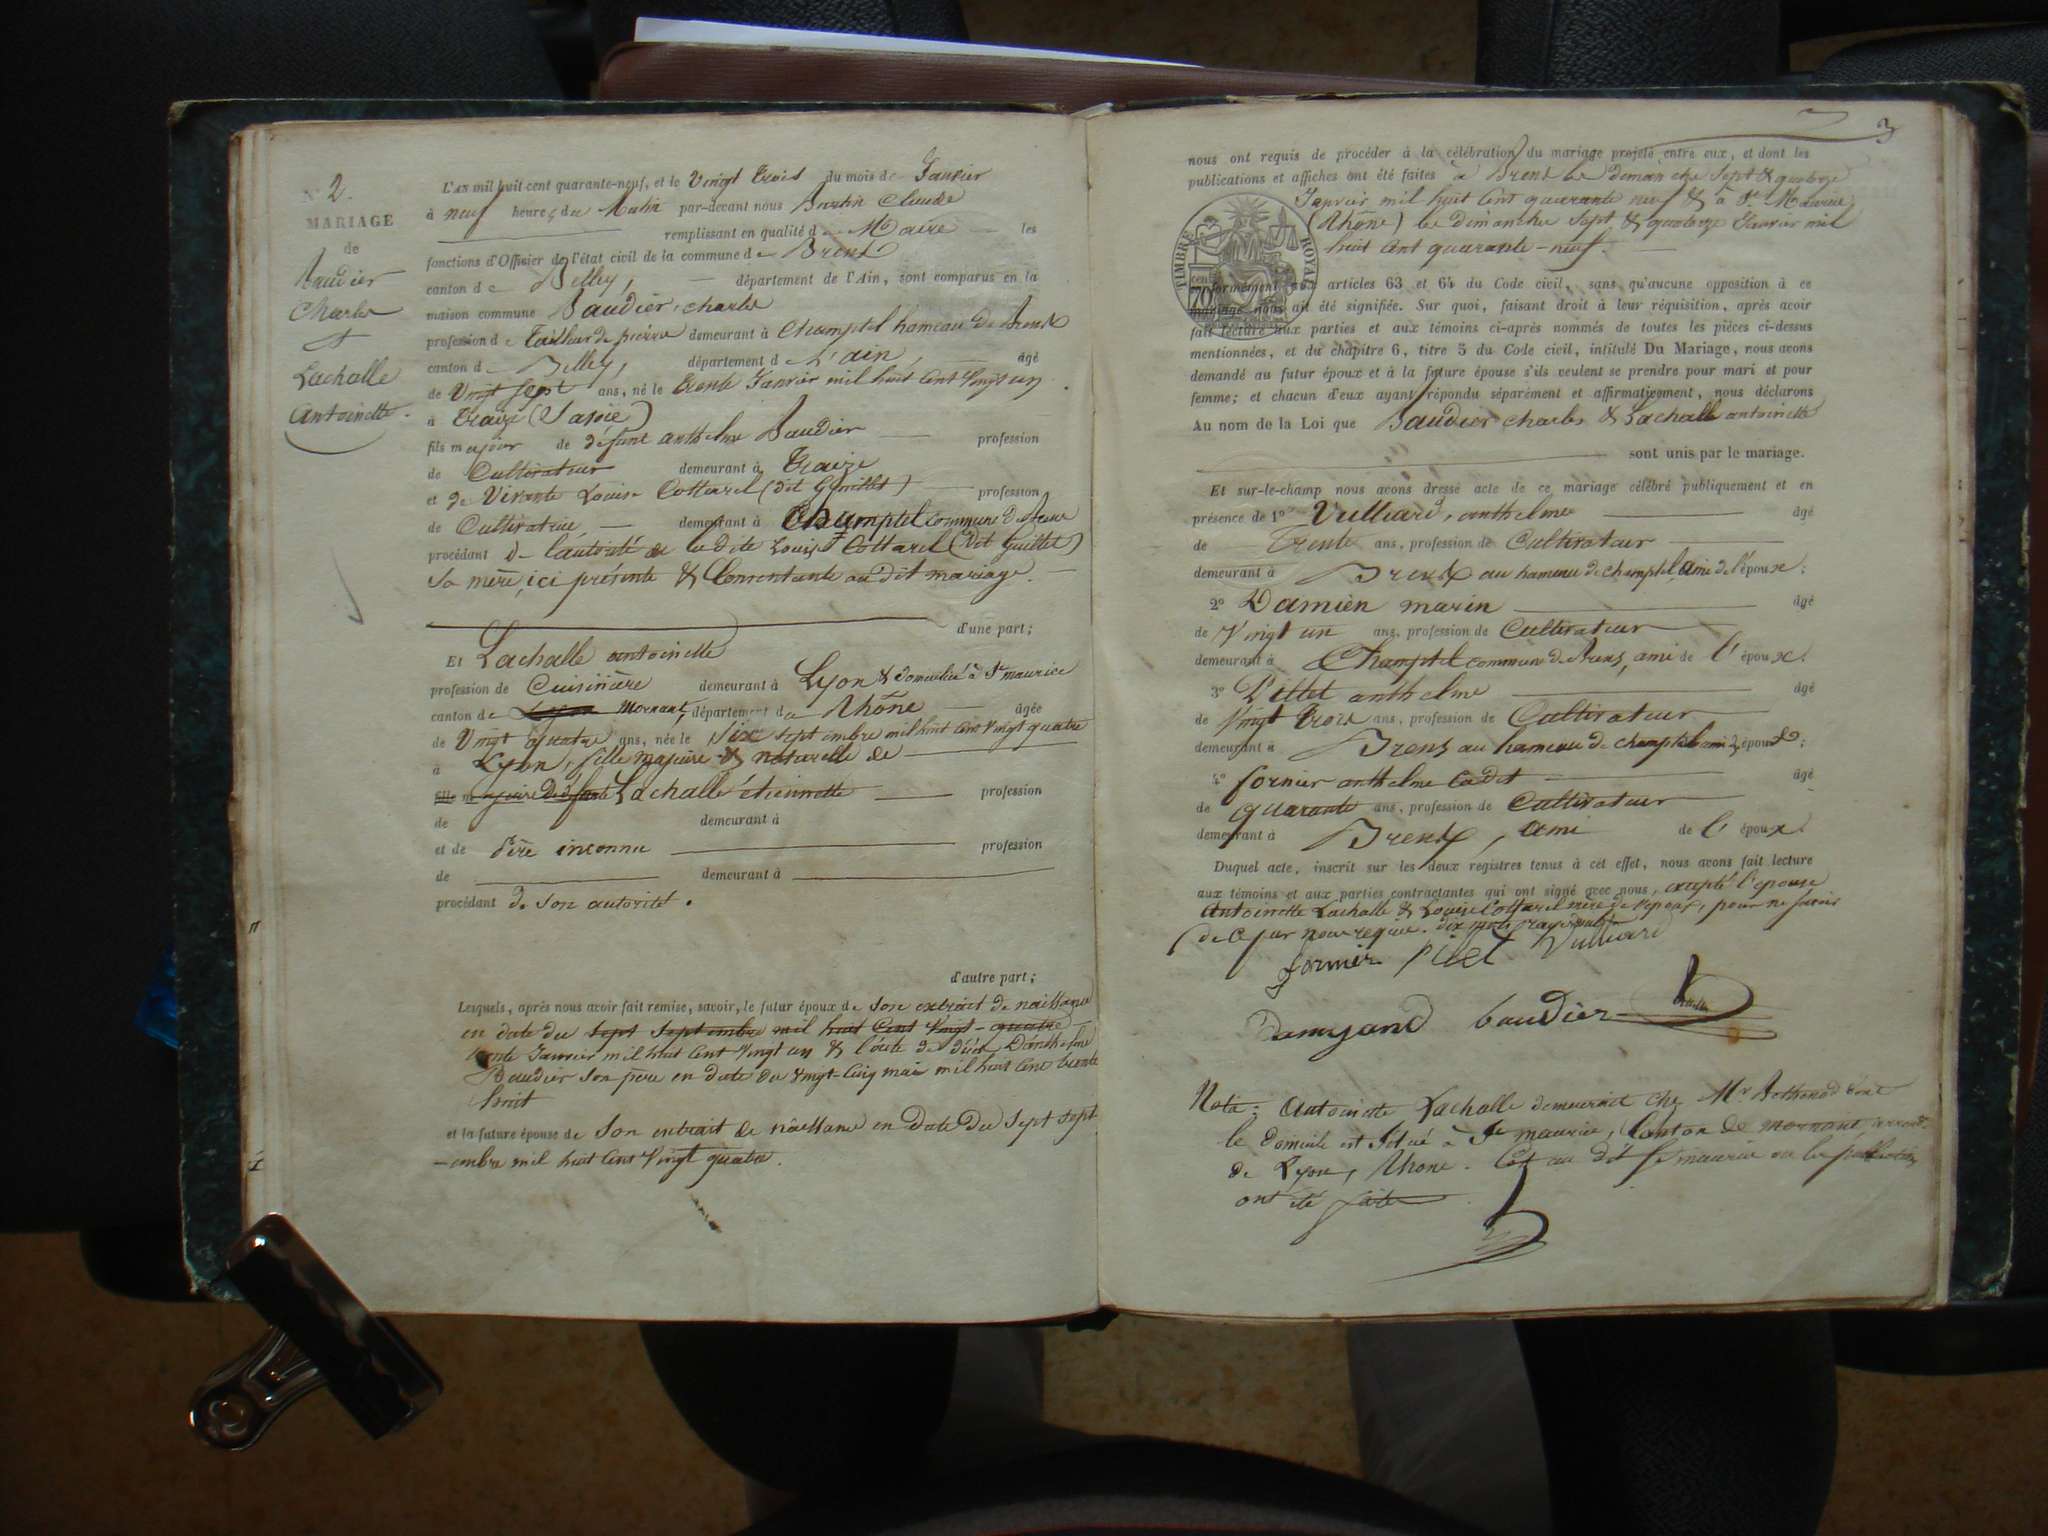 N° 2.
MARIAGE
de
Baudier
Charles
et
Lachalle
Antoinette.
L'AN mil huit cent quarante-neuf, et le Vingt trois du mois de Janvier
à neuf heures du Matin par-devant nous Claude
remplissant en qualité de Maire les
fonctions d'Officier de l'état civil de la commune de Brens
canton de Belley, département de l'Ain, sont comparus en la
maison commune Baudier, charles
profession de tailleur de pierre demeurant à Champtel hameau de Brens
canton de Belley, département de L'ain, âgé
de Vingt sept ans, né le trente Janvier mil huit Cent Vingt un.
à Traize (Savoie)
fils majeur de défunt anthelme Baudier profession
de Cultivateur demeurant à Traize
et de Vivante Louise Cottarel (dit Guillet) profession
de Cultivatrice demeurant à Champtel commune de Brens
procédant de l'autorité de la dite Louise Cottarel (Dit Guillet)
Sa mère, ici présente & Consentante au dit mariage.
d'une part;
Et Lachalle antoinette
profession de Cuisinière demeurant à Lyon & domiciliée à St maurice
canton de Lyon Mornant, département du Rhône âgée
de Vingt quatre ans, née le Six Sept embre mil huit Cent Vingt quatre
à Lyon, fille majeure & naturelle de
fille majeure de défunte Lachalle étiennette profession
de demeurant à
et de Père inconnu profession
de demeurant à
procédant de son autorité.
d'autre part;
Lesquels, après nous avoir fait remise, savoir, le futur époux de Son extrait de naissance
en date du sept septembre mil huit Cent Vingt-quatre
trente Janvier mil huit Cent Vingt un & l'acte de décès D'anthelme
Baudier Son père en date du Vingt-Cinq mai mil huit Cent trente
huit
et la future épouse de Son extrait de naissance en Date du Sept Sept
-embre mil huit Cent Vingt quatre.
3
nous ont requis de procéder à la célébration du mariage projeté entre eux, et dont les
publications et affiches ont été faites à Brens les dimanche Sept & quatorze
Janvier mil huit Cent quarante neuf & à St. Maurice
(Rhône) les dimanches Sept & quatorze Janvier mil
huit Cent quarante-neuf.
TIMBRE ROYAL
cen 70
conformément aux articles 63 et 64 du Code civil, sans qu'aucune opposition à ce
mariage nous ait été signifiée. Sur quoi, faisant droit à leur réquisition, après avoir
fait lecture aux parties et aux témoins ci-après nommés de toutes les pièces ci-dessus
mentionnées, et du chapitre 6, titre 5 du Code civil, intitulé Du Mariage, nous avons
demandé au futur époux et à la future épouse s'ils veulent se prendre pour mari et pour
femme; et chacun d'eux ayant répondu séparément et affirmativement, nous déclarons
Au nom de la Loi que Baudier charles & Lachalle antoinette
sont unis par le mariage.
Et sur-le-champ nous avons dressé acte de ce mariage célébré publiquement et en
présence de 1° Vulliard, anthelme âgé
de Trente ans, profession de Cultivateur
demeurant à Brens au hameau de champtel, ami de l'époux;
2° Damien marin âgé
de Vingt un ans, profession de Cultivateur
demeurant à Champtel commune de Brens, ami de l'époux.
3° Pillet anthelme âgé
de Vingt trois ans, profession de Cultivateur
demeurant à Brens au hameau de champtel ami d époux;
4° fornier anthelme Cadet âgé
de quarante ans, profession de Cultivateur
demeurant à Brens, ami de l'époux.
Duquel acte, inscrit sur les deux registres tenus à cet effet, nous avons fait lecture
aux témoins et aux parties contractantes qui ont signé avec nous, excepté l'épouse
Antoinette Lachalle & Louise Cottarel mère de l'époux, pour ne savoir
de ce par nous requis. dix mots rayés nuls
fornier Pilet Vulliard
baudier
Nota: Antoinette Lachalle demeurait chez Mr Bothenod dont
le domicile est Situé à St maurice, Canton de mornant arrondt
de Lyon, Rhone. C'est au dit St maurice où les publications
ont été faites